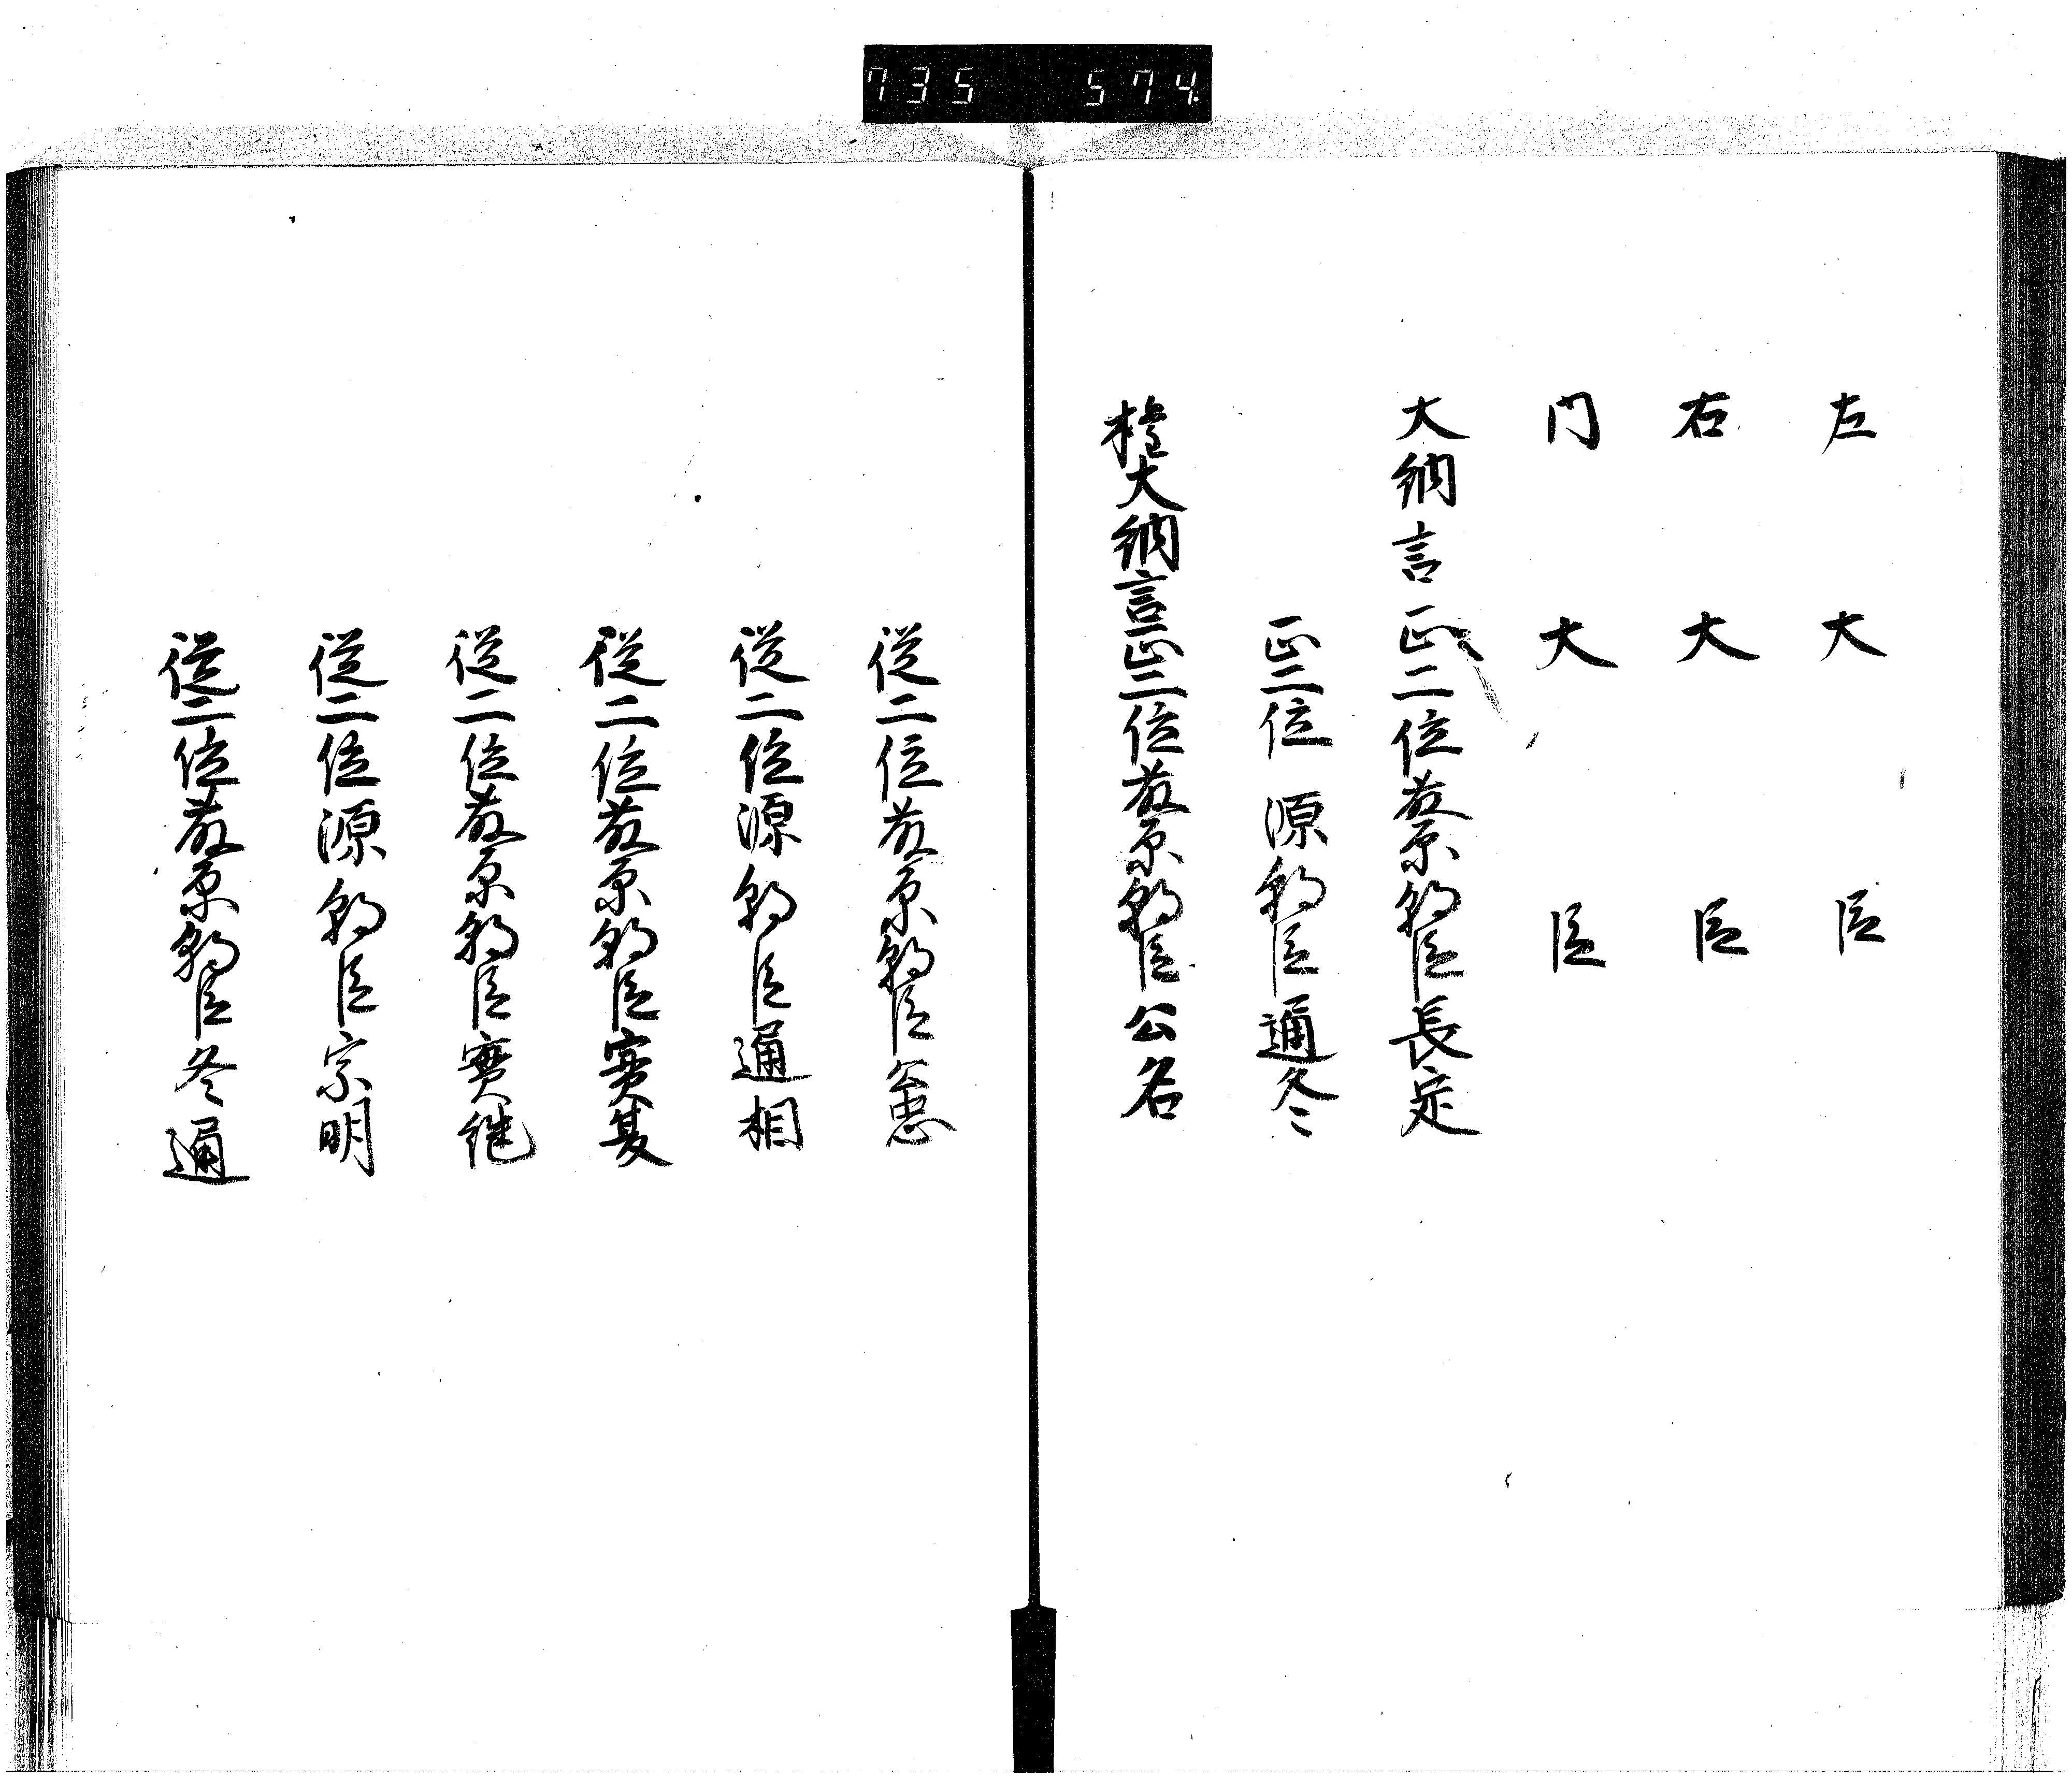 735 574
左大臣
右大臣
内大臣
大納言正二位藤原朝臣長定
正二位源朝臣通冬
権大納言正二位藤原朝臣公名
従二位藤原朝臣公忠
従二位源朝臣通相
従二位藤原朝臣實夏
従二位藤原朝臣實継
従二位源朝臣宗明
従二位藤原朝臣冬通